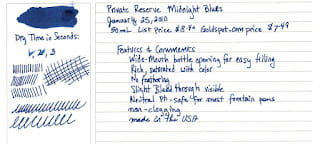 Private Reserve Midnight Blues
January 25, 2010
50 mL List Price $8.40 Goldspot.com price $7.49
Dry Time in Seconds:
Features & Comments
Wide-Mouth bottle opening for easy filling
Rich, saturated with color
No feathering
Slight Bleed through visible
Neutral Ph-safe for most fountain pens
non-clogging
made in the USA